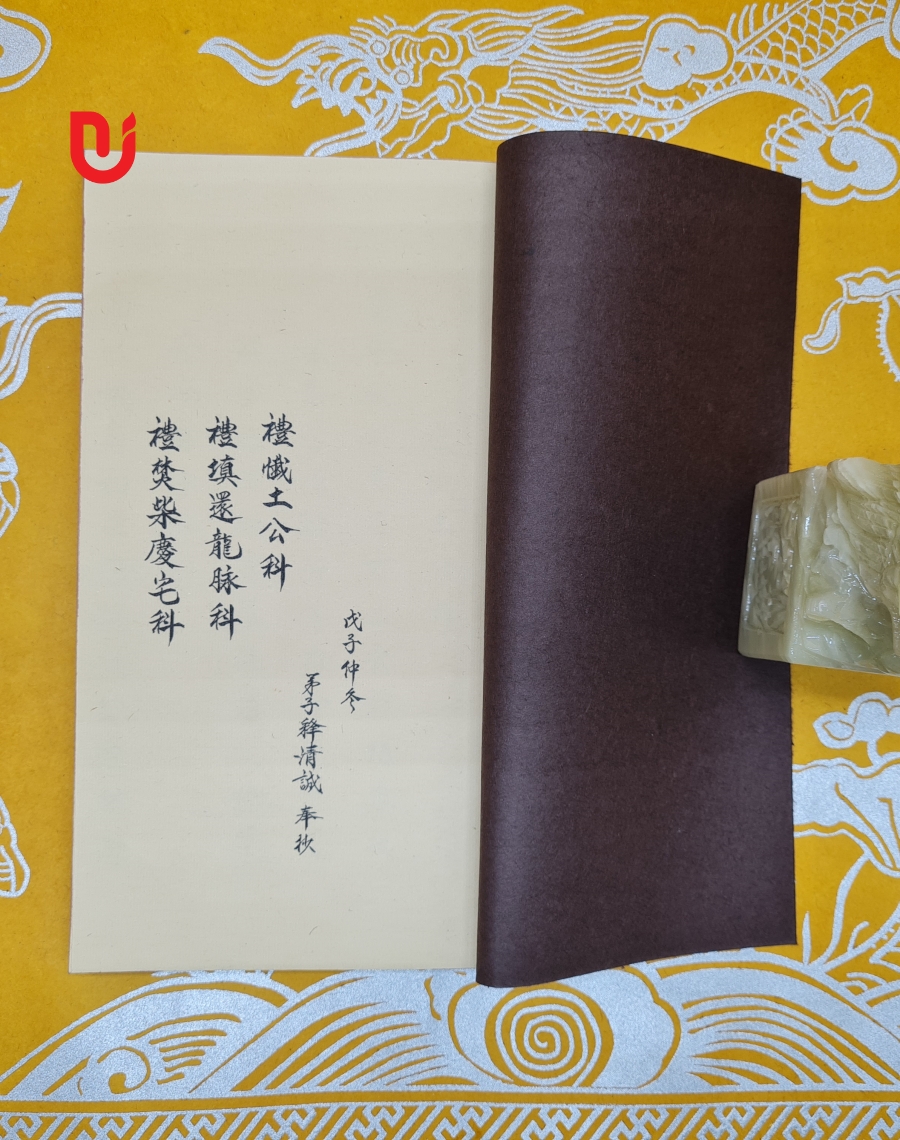 戊子仲冬
弟子释清誠 奉抄
禮懴土公科
禮填還龍脉科
禮焚柴慶宅科